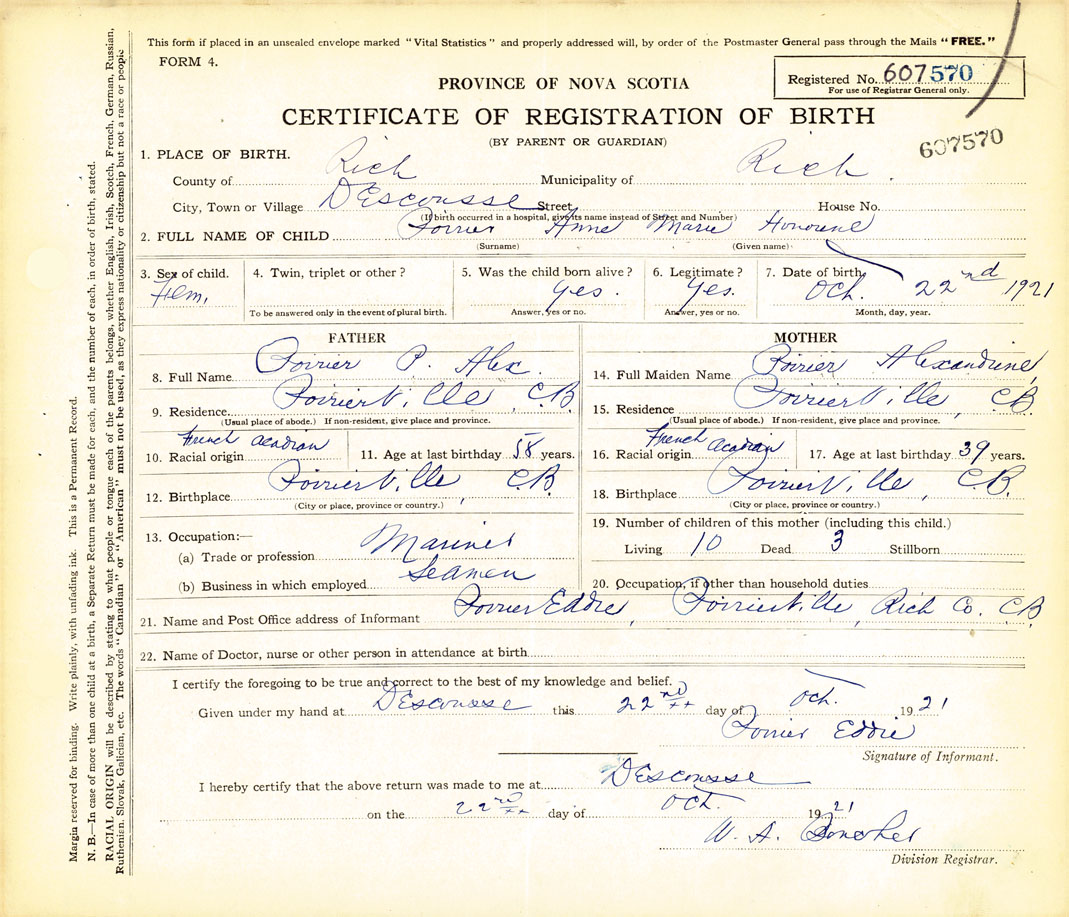 This form if placed in an unsealed envelope marked "Vital Statistics" and properly addressed will, by order of the Postmaster General pass through the Mails "FREE."
FORM 4.
Registered No. 607570
For use of Registrar General only.
PROVINCE OF NOVA SCOTIA
CERTIFICATE OF REGISTRATION OF BIRTH
(BY PARENT OR GUARDIAN)
607570
1. PLACE OF BIRTH.
County of Rich Municipality of Rich
City, Town or Village DEscousse Street House No.
(If birth occurred in a hospital, give its name instead of Street and Number)
2. FULL NAME OF CHILD Poirier Anne Marie Honorine
(Surname) (Given name)
3. Sex of child. 4. Twin, triplet or other? 5. Was the child born alive? 6. Legitimate? 7. Date of birth,
Fem. yes. Yes. Oct. 22nd 1921
To be answered only in the event of plural birth. Answer, yes or no. Answer, yes or no. Month, day, year.
FATHER
8. Full Name Poirier P. Alex.
9. Residence PoirierVille, C.B
(Usual place of abode.) If non-resident, give place and province.
10. Racial origin French Acadian 11. Age at last birthday 58 years.
12. Birthplace PoirierVille, C.B.
(City or place, province or country.)
13. Occupation:—
(a) Trade or profession Mariner
(b) Business in which employed Seamen
MOTHER
14. Full Maiden Name Poirier Alexandrine
15. Residence PoirierVille, CB
(Usual place of abode.) If non-resident, give place and province.
16. Racial origin French Acadian 17. Age at last birthday 39 years.
18. Birthplace PoirierVille, C.B.
(City or place, province or country.)
19. Number of children of this mother (including this child.)
Living 10 Dead 3 Stillborn
20. Occupation, if other than household duties
21. Name and Post Office address of Informant Poirier Eddie, PoirierVille, Rich Co. C.B
22. Name of Doctor, nurse or other person in attendance at birth
I certify the foregoing to be true and correct to the best of my knowledge and belief.
Given under my hand at DEscousse this 22nd day of Oct. 1921
Poirier Eddie
Signature of Informant.
I hereby certify that the above return was made to me at DEscousse
on the 22nd day of Oct. 1921
W. A.
Division Registrar.
Margin reserved for binding. Write plainly, with unfading ink. This is a Permanent Record.
N. B.—In case of more than one child at a birth, a Separate Return must be made for each, and the number of each, in order of birth, stated.
RACIAL ORIGIN will be described by stating to what people or tongue each of the parents belongs, whether English, Irish, Scotch, French, German, Russian,
Ruthenian, Slovak, Galician, etc. The words "Canadian" or "American" must not be used, as they express nationality or citizenship but not a race or people